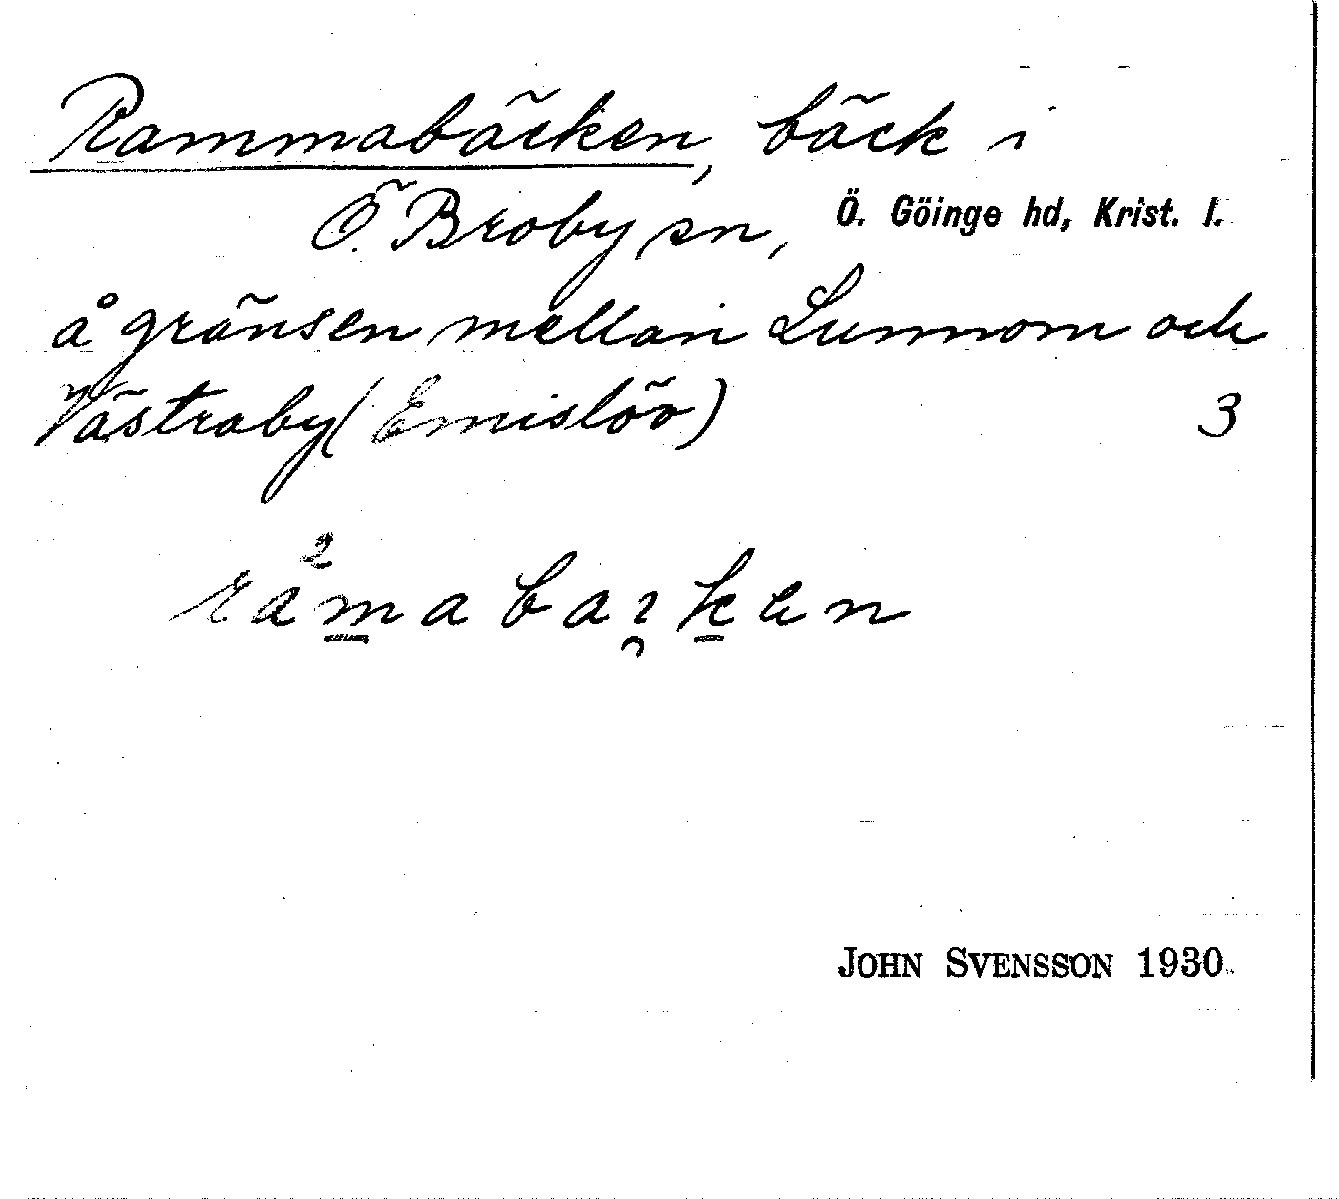 Rammabäcken, bäck i
Ö. Broby sn, Ö. Göinge hd, Krist. l.
å gränsen mellan Lunnom och
Västraby (Emislöv) 3
JOHN SVENSSON 1930